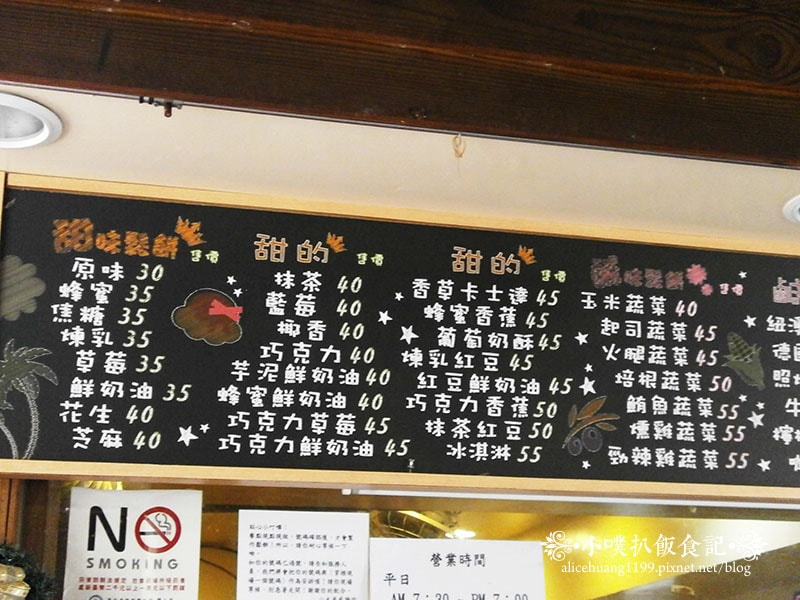 甜味鬆餅 售價
原味 30
蜂蜜 35
焦糖 35
煉乳 35
草莓 35
鮮奶油 35
花生 40
芝麻 40
甜的 售價
抹茶 40
藍莓 40
椰香 40
巧克力 40
芋泥鮮奶油 40
蜂蜜鮮奶油 40
巧克力草莓 45
巧克力鮮奶油 45
甜的 售價
香草卡士達 45
蜂蜜香蕉 45
葡萄奶酥 45
煉乳紅豆 45
紅豆鮮奶油 45
巧克力香蕉 50
抹茶紅豆 50
冰淇淋 55
鹹味鬆餅 售價
玉米蔬菜 40
起司蔬菜 45
火腿蔬菜 45
培根蔬菜 50
鮪魚蔬菜 55
燻雞蔬菜 55
勁辣雞蔬菜 55
紐澳
德國
照燒
牛
NO
SMOKING
貼心小叮嚀:
營業時間
平日
AM 7:30 ~ PM 7:00
小噗扒飯食記
alicehuang1199.pixnet.net/blog